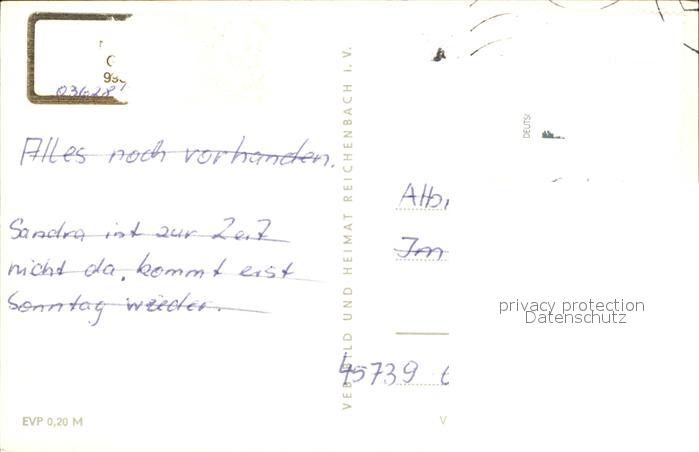 036281
Alles noch vorhanden.
Sandra ist zur Zeit
nicht da, kommt erst
Sonntag wieder.
EVP 0,20 M
BILD UND HEIMAT REICHENBACH I. V.
Im
45739
V
privacy protection
Datenschutz